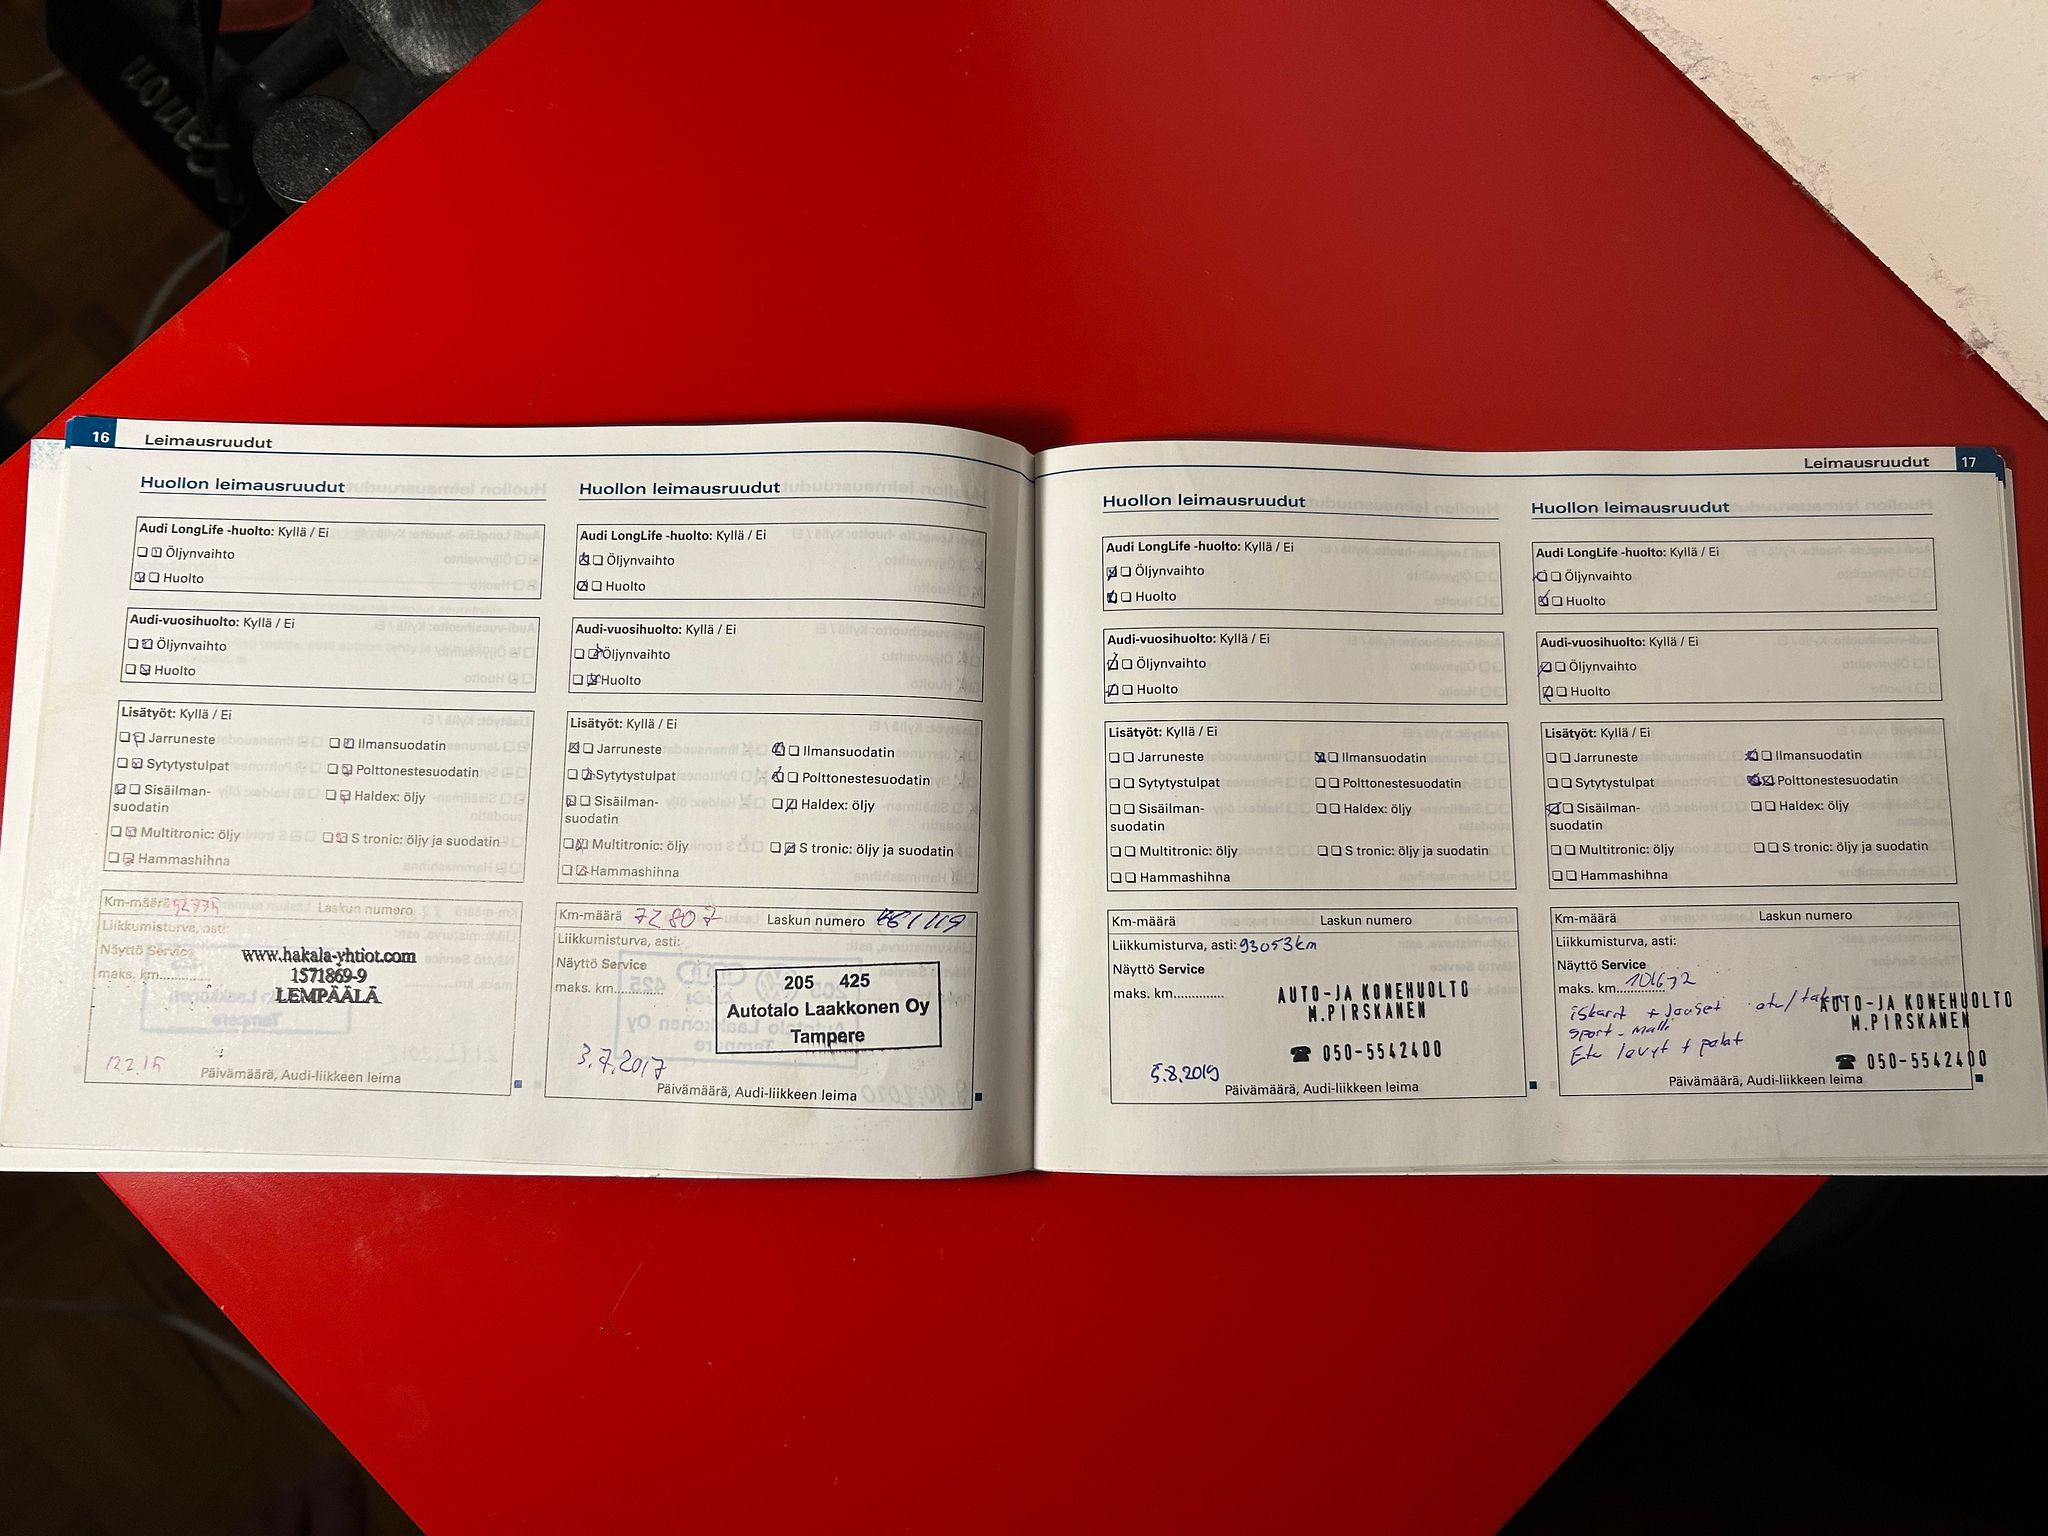 Canon
16 Leimausruudut
Huollon leimausruudut
Audi LongLife -huolto: Kyllä / Ei
Öljynvaihto
Huolto
Audi-vuosihuolto: Kyllä / Ei
Öljynvaihto
Huolto
Lisätyöt: Kyllä / Ei
Jarruneste Ilmansuodatin
Sytytystulpat Polttonestesuodatin
Sisäilman- Haldex: öljy
suodatin
Multitronic: öljy S tronic: öljy ja suodatin
Hammashihna
Km-määrä Laskun numero
Liikkumisturva, asti:
Näyttö Service
maks. km.............
www.hakala-yhtiot.com
1571869-9
LEMPÄÄLÄ
12.2.15
Päivämäärä, Audi-liikkeen leima
Huollon leimausruudut
Audi LongLife -huolto: Kyllä / Ei
Öljynvaihto
Huolto
Audi-vuosihuolto: Kyllä / Ei
Öljynvaihto
Huolto
Lisätyöt: Kyllä / Ei
Jarruneste Ilmansuodatin
Sytytystulpat Polttonestesuodatin
Sisäilman- Haldex: öljy
suodatin
Multitronic: öljy S tronic: öljy ja suodatin
Hammashihna
Km-määrä 72807 Laskun numero
Liikkumisturva, asti:
Näyttö Service
maks. km.............
205 425
Autotalo Laakkonen Oy
Tampere
3.7.2017
Päivämäärä, Audi-liikkeen leima
Leimausruudut 17
Huollon leimausruudut
Audi LongLife -huolto: Kyllä / Ei
Öljynvaihto
Huolto
Audi-vuosihuolto: Kyllä / Ei
Öljynvaihto
Huolto
Lisätyöt: Kyllä / Ei
Jarruneste Ilmansuodatin
Sytytystulpat Polttonestesuodatin
Sisäilman- Haldex: öljy
suodatin
Multitronic: öljy S tronic: öljy ja suodatin
Hammashihna
Km-määrä Laskun numero
Liikkumisturva, asti: 93053km
Näyttö Service
maks. km.............
AUTO-JA KONEHUOLTO
M.PIRSKANEN
☎ 050-5542400
5.8.2019
Päivämäärä, Audi-liikkeen leima
Huollon leimausruudut
Audi LongLife -huolto: Kyllä / Ei
Öljynvaihto
Huolto
Audi-vuosihuolto: Kyllä / Ei
Öljynvaihto
Huolto
Lisätyöt: Kyllä / Ei
Jarruneste Ilmansuodatin
Sytytystulpat Polttonestesuodatin
Sisäilman- Haldex: öljy
suodatin
Multitronic: öljy S tronic: öljy ja suodatin
Hammashihna
Km-määrä Laskun numero
Liikkumisturva, asti:
Näyttö Service
maks. km.............
iskarit + jouset etu/
sport-malli
Etu levyt + palat
AUTO-JA KONEHUOLTO
M.PIRSKANEN
☎ 050-5542400
Päivämäärä, Audi-liikkeen leima